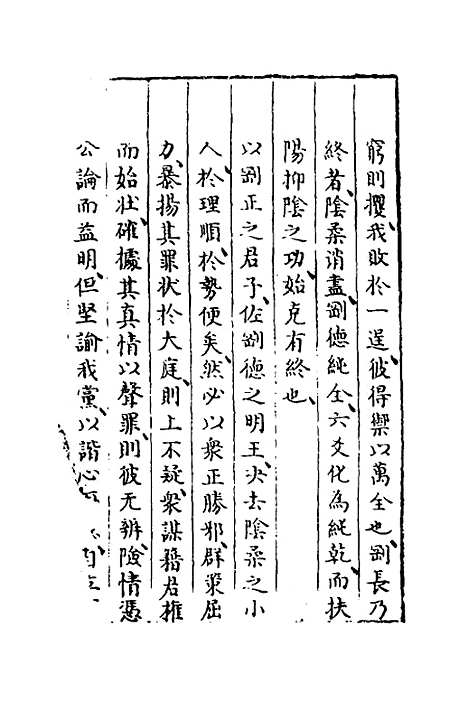 窮則攖、我敗於一逞、彼得禦以萬全也、剛長乃
終者、陰柔消盡、剛德純全、六爻化為純乾、而扶
陽抑陰之功、始克有終也、
以剛正之君子、佐剛德之明王、決去陰柔之小
人、於理順、於勢便矣、然必以衆正勝邪、群策屈
力、暴揚其罪狀於大庭、則上不疑、衆謀藉君權
而始壯、確據其真情以聲罪、則彼无辨、險情憑
公論而益明、但堅諭我黨、以諧心